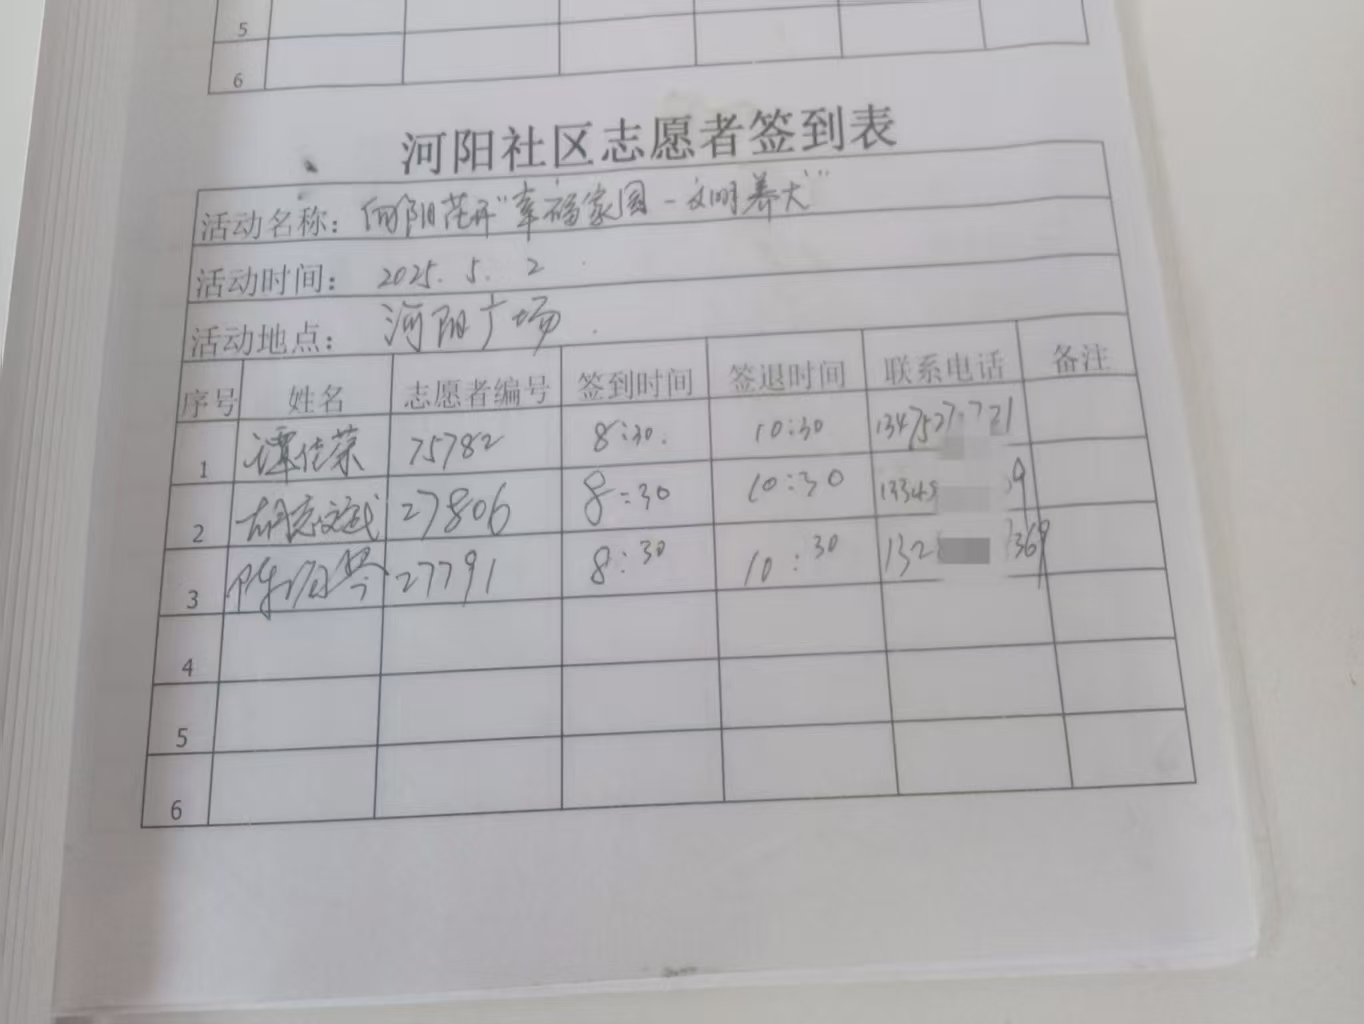 5
6
河阳社区志愿者签到表
活动名称：向阳花开"幸福家园-文明养犬"
活动时间：2025.5.2
活动地点：河阳广场.
序号 姓名 志愿者编号 签到时间 签退时间 联系电话 备注
1 谭佳荣 75782 8:30. 10:30
2 胡志斌 27806 8:30 10:30
3 27791 8:30 10:30 132 369
4
5
6